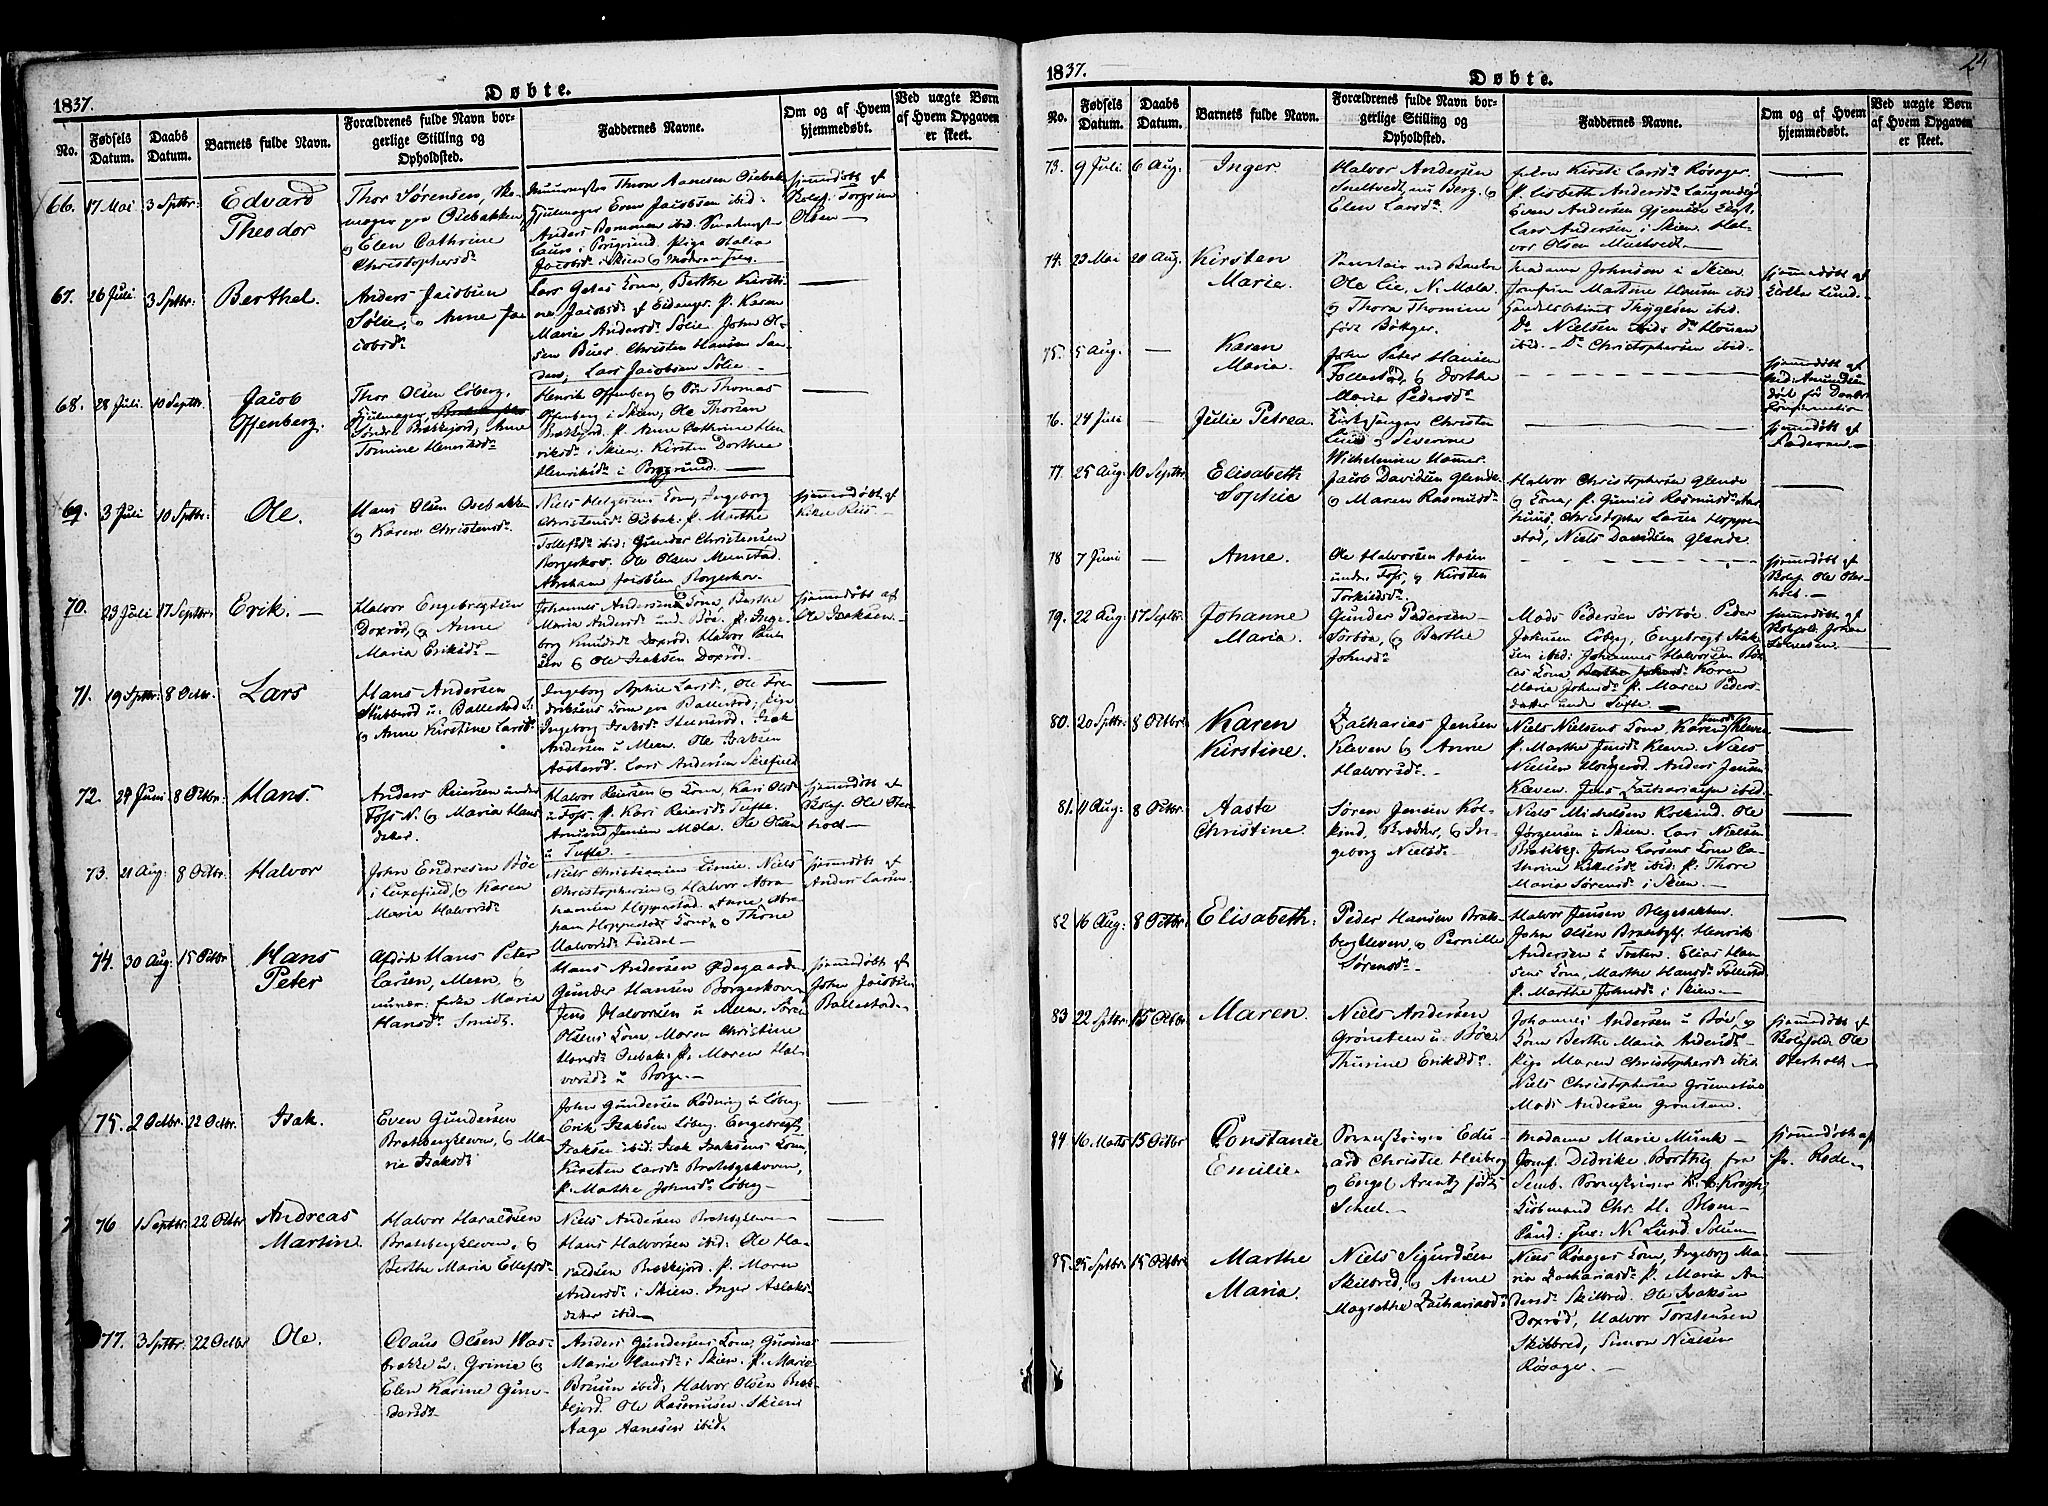 1837.
Døbte.
No.
Fødsels Datum.
Daabs Datum.
Barnets fulde Navn.
Forældrenes fulde Navn borgerlige Stilling og Opholdsted.
Faddernes Navne.
Om og af Hvem hjemmedøbt.
Ved uægte Børn af Hvem Opgaven er skeet.
66. 17 Mai 3 Septbr: Edvard Theodor
Thor Sørensen,
Osebakken,
Elen Cathrine
Christophersdr
Thom Aanesen Osebak
Hjulmager Even Jacobsen ibid:
Jacobsdr i Skien
hjemmedøbt af
Olsen
67. 26 Juli 3 Septbr: Berthel.
Anders Jacobsen
Sølie, og Anne Ja
cobsdr
Lars Getas Kone, Berthe Kirsti-
ne Jacobsdr af Eidanger P. Karen
Marie Andersdr Sølie. John Ol-
sen Buer. Christen Hansen San-
den; Lars Jacobsen Sølie
68. 28 Juli 10 Septbr. Jacob Offenberg.
Thor Olsen Løberg,
Hjulmager
Søndre Brekkejord, Anne
Tomine Henriksdr
Henrik Offenberg og Søn Thomas
Offenberg i Skien, Ole Thorsen
Brekkejord. P. Anne Cathrine Hen
riksdr i Skien. Kirsten Dorthea
Henriksdr i Porsgrund.
69. 3 Juli 10 Septbr: Ole.
Hans Olsen Osebakken
og Karen Christensdr
Niels Helgesens Kone, Ingeborg
Christensdr Osebak: P. Marthe
Tollefsdr ibid: Gunder Christensen
Borgeskov. Ole Olsen Menstad.
Abraham Jacobsen Borgeskov.
hjemmedøbt af
70. 23 Juli 17 Septbr: Erik.
Halvor Engebregtsen
Doxrød, og Anne
Maria Eriksdr
Johannes Andersens Kone, Berthe
Maria Andersdr und. Bøe. P. Inge
borg Knudsdr Doxrød. Halvor Paul
sen og Ole Isaksen Doxrød.
hjemmedøbt af
Ole Isaksen
71. 19 Septbr: 8 Octbr: Lars
Hans Andersen
Stubberød u: Ballestad
og Anne Kirstine Larsdr
Ingeborg Sophie Larsdr, Ole Fre
driksens Kone paa Ballestad, Pige
Ingeborg Isaksdr Stensrød. Isak
Andersen u Meen. Ole Isaksen
Aasterød. Lars Andersen
72. 24 Juni 8 Octbr: Hans.
Anders Reiersen under
Foss N. og Maria Hans
datter.
Halvor Reiersen og Kone, Kari Olsdr
u Foss. P. Kari Reiersdr Tufte.
Amund Jensen Mæla. Ole Olsen
u Tufte
hjemmedøbt af
Skoleh. Ole Øster
holt
73. 21 Aug: 8 Octbr: Halvor
John Endresen Bøe
i Luxefjeld, og Karen
Maria Halvorsdr
Niels Christiansen Limie. Niels
Christophersen og Halvor Abra
hamsen Hoppestad. Anne Abra
ham Hoppestad Kone, og Thone
Halvorsdr
hjemmedøbt af
Anders Larsen
74. 30 Aug: 15 Octbr Hans Peter
Afdøde Hans Peter
Larsen, Meen, og
Enke Maria
Hansdr Smidt.
Hans Andersen Ødegaarden
Gunder Hansen Borgeskoven
Jens Halvorsen u Meen. Søren
Olsens Kone Maren Christine
Hansdr Osebak: P. Maren Hal-
vorsdr u Borge.
hjemmedøbt af
John Jacobsen
Ballestad
75. 2 Octbr: 22 Octbr. Isak.
Even Gundersen
Bratsbergkleven, og Ma-
rie Isaksdr
John Gundersen Rødning u Løberg.
Erik Isaksen Løberg. Engebregt
Isaksen ibid: Isak Isaksens Kone,
Kirsten Larsdr Bratsbgkleven,
P. Mathe Johnsdr Løberg
76 1 Septbr: 22 Octbr Andreas Martin.
Halvor Haraldsen
Bratsbergkleven, og
Berthe Maria Ellefsdr
Niels Andersen Bratsbgkleven
Hans Halvorsen ibid: Ole Ha-
raldsen Brekkejord. P. Maren
Andersdr i Skien. Inger Aslaks-
datter ibid
77. 3 Septbr: 22 Octbr Ole.
Claus Olsen Vas-
brække u: Grinie og
Elen Karine Gun-
dersdr
Anders Gundersens Kone, Gunnild
Marie Hansdr i Skien. P. Marie
Bruun ibid, Halvor Olsen Brek-
kejord. Ole Rasmussen Skien
Aage Aanesen ibid.
1837.
24
Døbte.
No.
Fødsels Datum.
Daabs Datum.
Barnets fulde Navn.
Forældrenes fulde Navn borgerlige Stilling og Opholdsted.
Faddernes Navne.
Om og af Hvem hjemmedøbt.
Ved uægte Børn af Hvem Opgaven er skeet.
73. 9 Juli 6 Aug. Inger
Halvor Andersen
Sneltvedt, nu Berg. og
Elen Larsdr
Enken Kirsti Larsdr Røsager.
P. Lisbeth Andersdr
Even Andersen Gjemsøe Klost.
Lars Andersen i Skien. Hal-
vor Olsen Mustvedt.
74. 23 Mai 20 Aug. Kirsten Marie.
Ole Lie, N. Mæla.
og Thora Thomine
født Bøkger.
Madame Johnsen i Skien.
Jomfrue Martine Housen ibid
Thygesen ibid.
Do Nielsen ibid. Do Housen
ibid. Do Christophersen ibid.
hjemmedøbt af
Klokker Lund.
75. 5 Aug. Karen Maria.
John Peter Hansen
Follestad, og Dorthe
Maria Pedersdr
hjemmedøbt af
76. 24 Juli Julie Petrea.
Kirkesanger Christen
Lund og Severine
Wilhelmsen Hammer.
hjemmedøbt af
Faderen.
77. 25 Aug: 10 Septbr. Elisabeth Sophie
Jacob Davidsen Glende
og Maren Rasmusdr
Halvor Christophersen Glende
og Kone, P. Gunild Rasmusdr Aar
huus, Christopher Larsen Hoppe
stad, Niels Davidsen Glende.
78 7 Juni Anne.
Ole Halvorsen Aasen
under Foss, og Kirsten
Torkildsdr
hjemmedøbt af
Skoleh. Ole Øster
holt.
79. 22 Aug: 17 Septbr. Johanne Maria.
Gunder Pedersen
Sørbøe, og Berthe
Johnsdr
Mads Pedersen Sørbøe. Peder
Johnsen Løberg, Engebregt Isak
sen ibid: Johannes Halvorsen Bø-
les Kone Karen
Maria Johnsdr P. Maren Peders
datter under Tufte
hjemmedøbt af
Johan
80. 20 Septbr: 8 Octbr: Karen Kirstine.
Zacharias Jensen
Kleven og Anne
Halvorsdr.
Niels Nielsens Kone Karen Jensdr Kleven
P. Marthe Jensdr Kleven. Niels
Nielsen Anders Jensen
Kleven. Jens Zachariasen ibid.
81. 4 Aug: 8 Octbr. Aasta Christine.
Søren Jensen Kol-
kind, Snedker, og In-
geborg Nielsdr
Niels Michelsen Kolkind. Ole
Jørgensen i Skien. Lars Nielsen
Bratsbg. John Larsens Kone Ca-
thrine ibid. P. Thore
Maria Sørensdr i Skien.
82 16 Aug: 8 Octbr: Elisabeth.
Peder Hansen Brats-
bergkleven, og Pernille
Sørensdr
Halvor Jensen Blegebakken.
John Olsen Bratsbgkl. Henrik
Andersen u Tosten. Elias Han
sens Kone, Marthe Hansdr Follestad
P. Marthe Johnsdr i Skien
83 22 Septbr: 15 Octbr Maren.
Niels Andersen
Grønsteen u: Bøe.
Thurine Eriksdr.
Johannes Andersen u Bøe, og
Kone Berthe Maria Andersdr
Pige Maren Christophersdr ibid
Niels Christophersen
Mads Andersen Grønsteen.
hjemmedøbt af
Skolehold. Ole
Østerholt
84 16 Marts 15 Octbr Constance Emilie.
Sorenskriver Edu-
ard Christie Heiberg
og Engel Arentz født
Scheel.
Madame Marie Munk
Jomf. Didrike Borthig fra
Semb. Sorenskriver Krogh,
Kiøbmand Chr. H. Blom
N. Lund Solum
hjemmedøbt af
pr. Rode
85. 25 Septbr: 15 Octbr Marthe Maria.
Niels Sigurdsen
Skilbred, og Anne
Magrethe Zachariasdr
Niels Røsagers Kone, Ingeborg Ma-
ria Zachariasdr P. Maria An
dersdr Skilbred. Ole Isaksen
Doxrød, Halvor Torstensen
Skilbred, Simon Nielsen
Røsager.